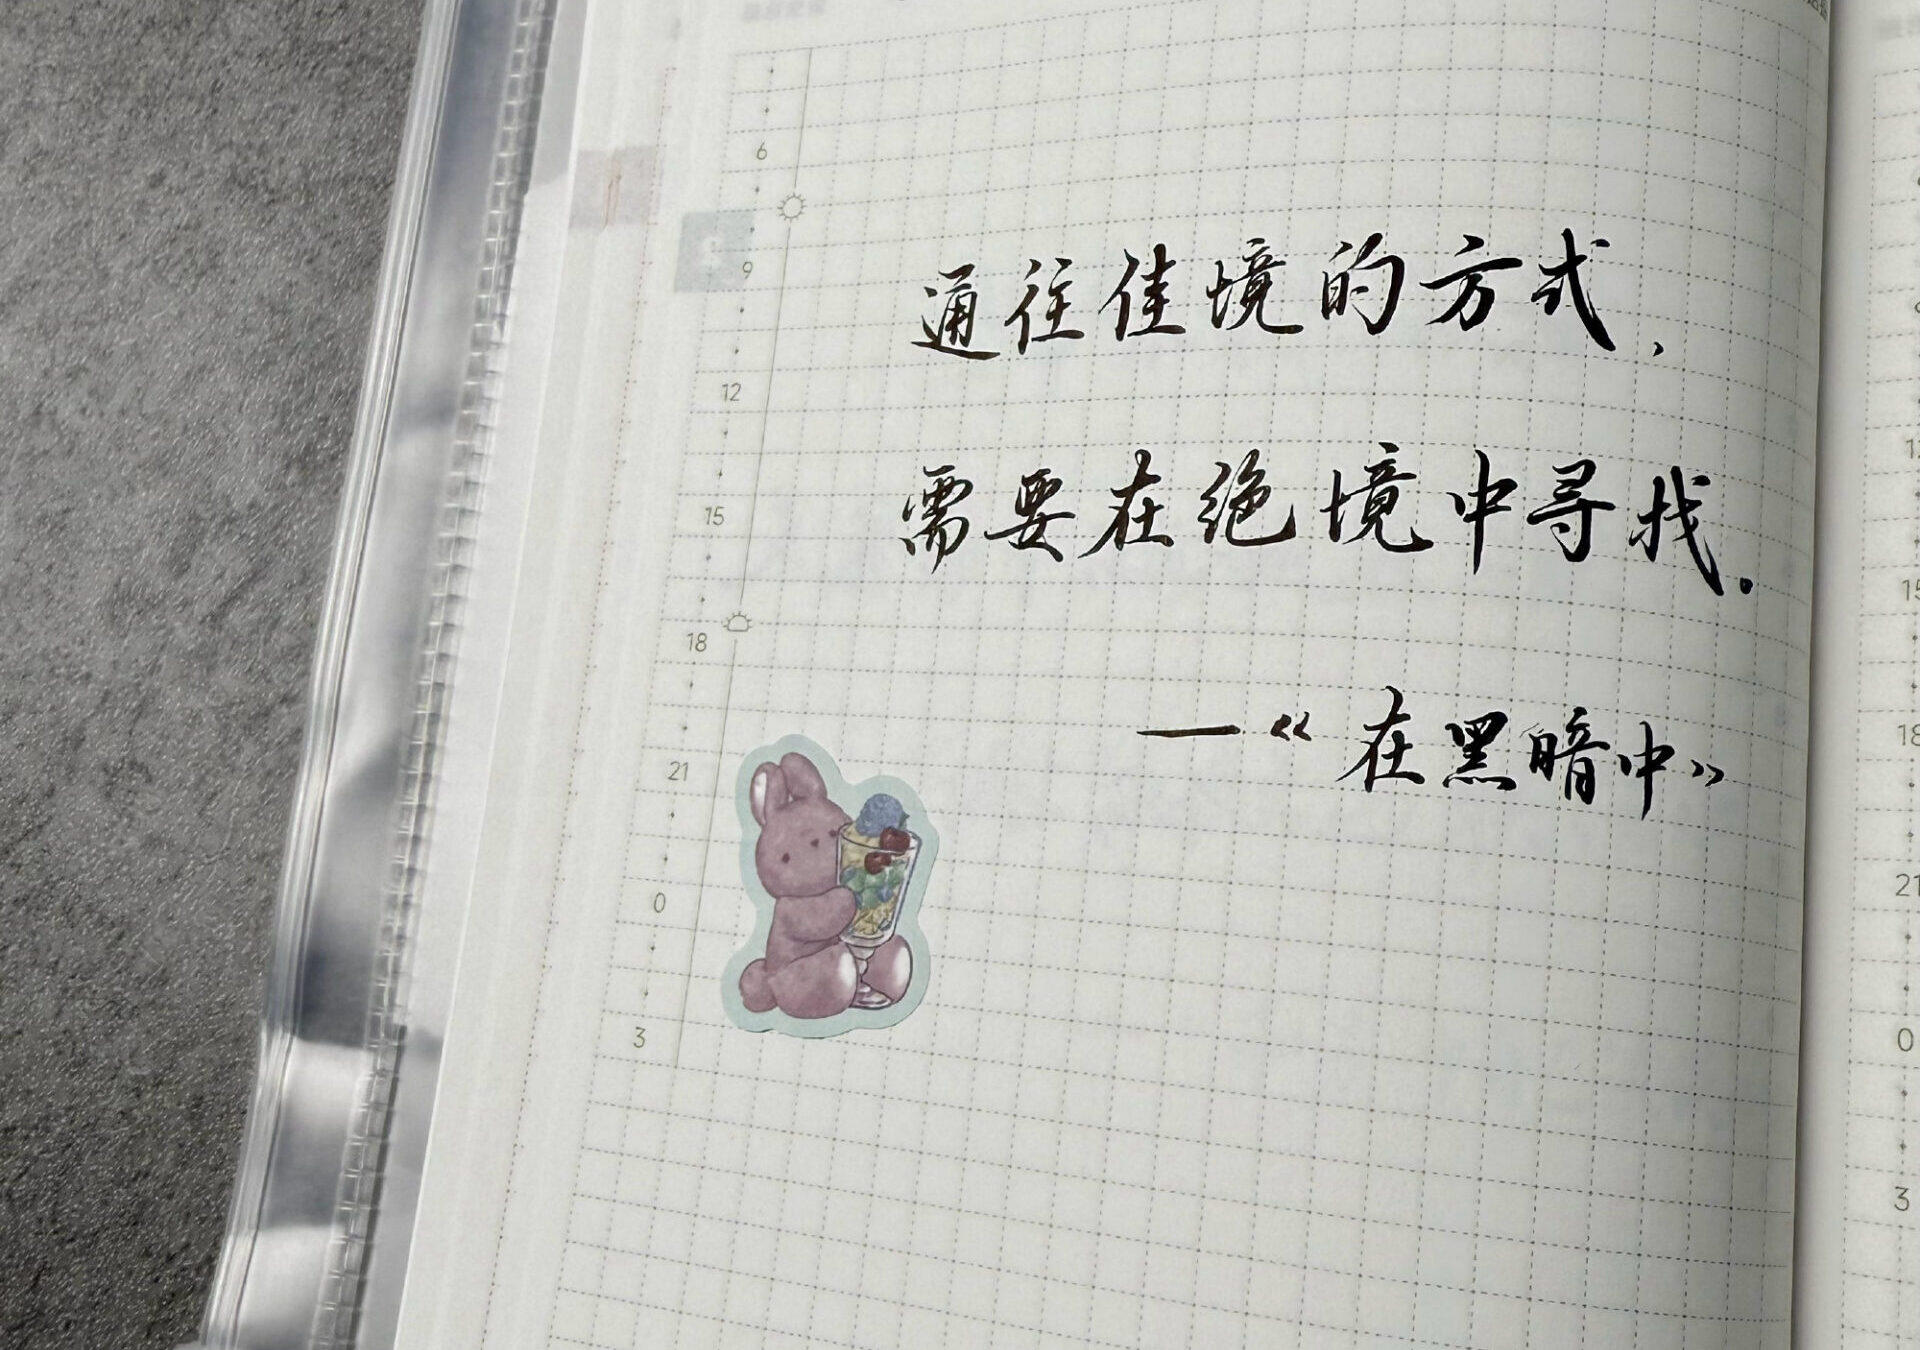 6
9
12
15
18
21
0
3
通往佳境的方式,
需要在绝境中寻找。
—《在黑暗中》
18
21
0
3